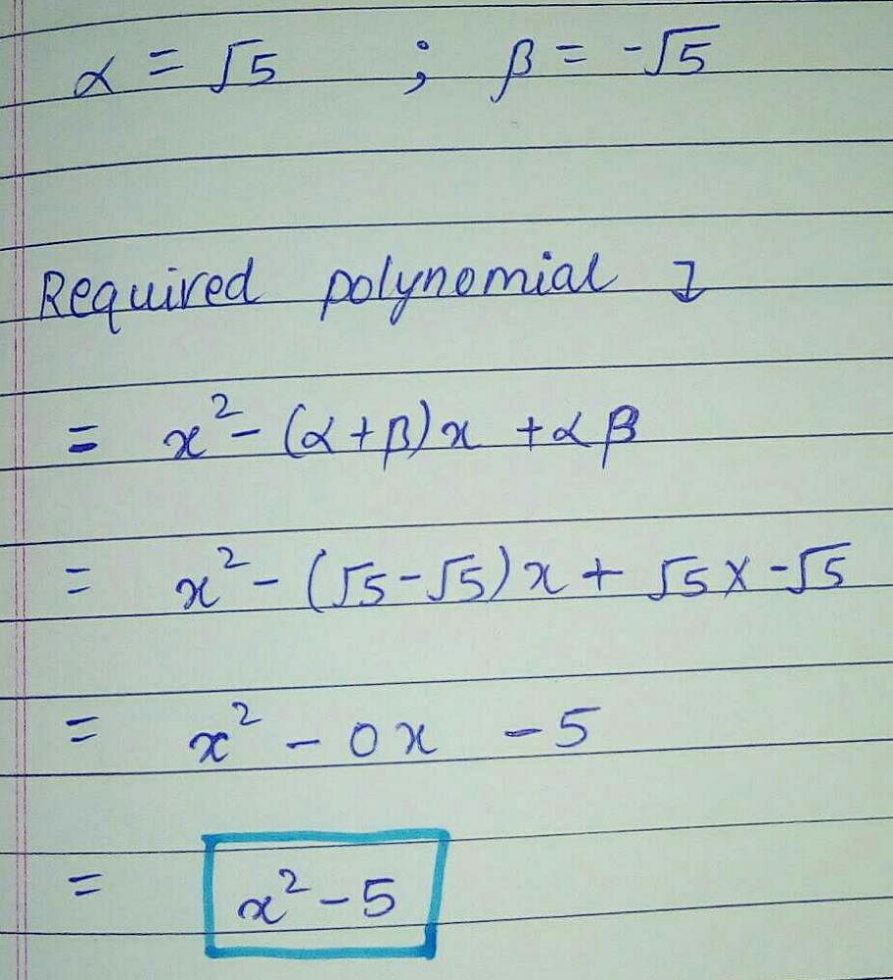 α = √5 ; β = -√5
Required polynomial ↴
= x² - (α + β)x + αβ
= x² - (√5 - √5)x + √5 × -√5
= x² - 0x - 5
= x² - 5